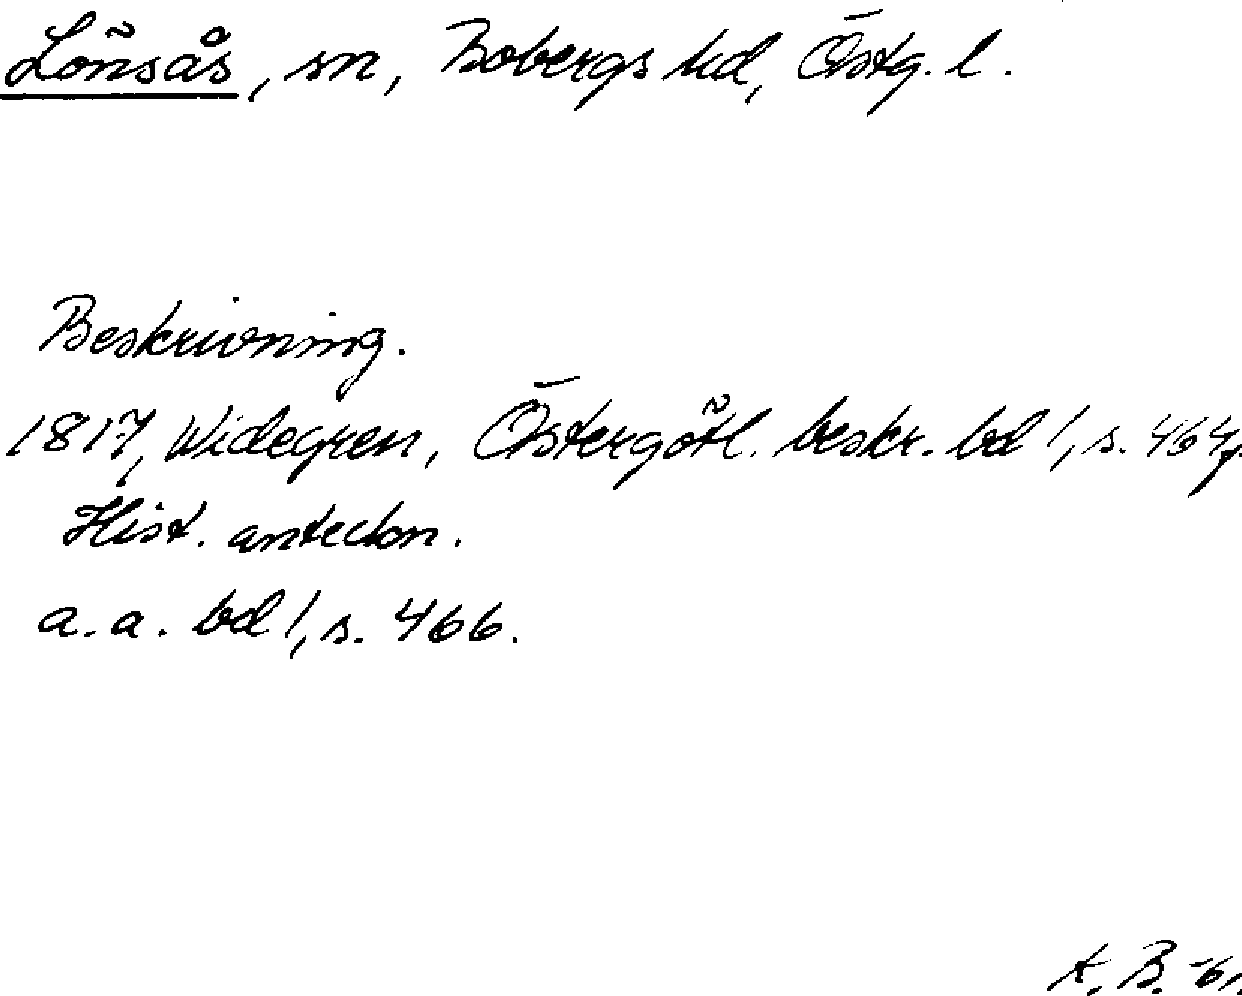 Lönsås, sn, Bobergs hd, Östg. l.
Beskrivning.
1817, Widegren, Östergötl. beskr. bd 1, s. 464f.
Hist. anteckn.
a. a. bd 1, s. 466.
A. B. -61